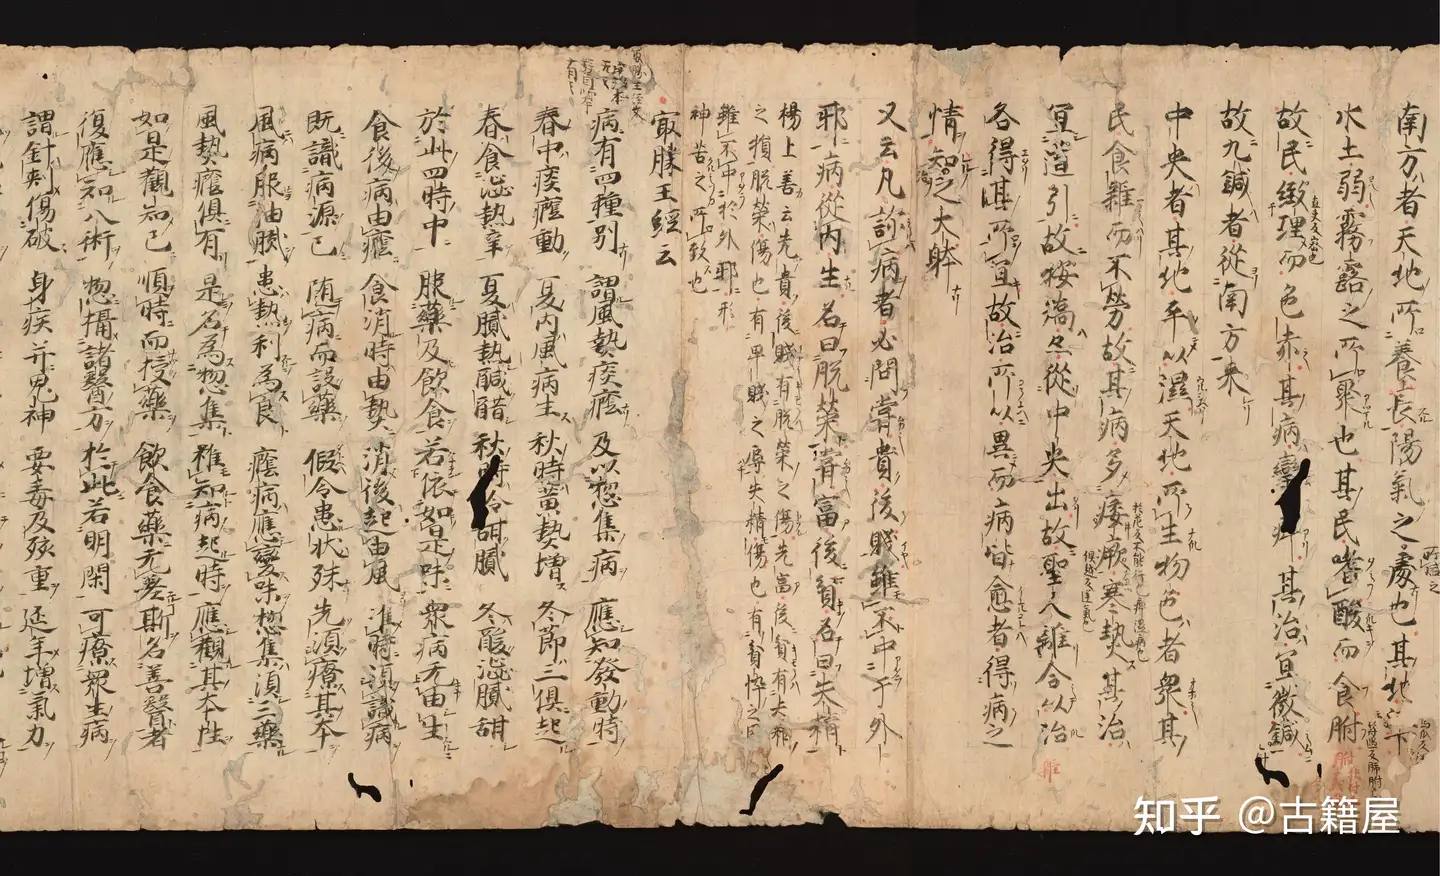 南方者天地所養長陽氣之處也其地下
水土弱霧露之所聚也其民嗜酸而食胕
故民緻理而色赤其病攣 其治宜微鍼
故九鍼者從南方来
中央者其地平以濕天地所生物色者衆其
民食雜而不勞故其病多痿厥寒熱其治
宜導引故按蹻亦從中央出故聖人雜合以治
各得其所宜故治所以異而病皆愈者得病之
情知之大躰
又云凡診病者必問甞貴後賤雖不中于外
耶病從内生名曰脱榮甞富後貧名曰失精
楊上善云先貴後賤有脱榮之傷先富後貧有失精
之損脱榮傷也有平賤之辱失精傷也有貧悴之
雖不中於外耶形
神苦之所致也
冣勝王經云
病有四種別 謂風熱痰癊 及以惣集病 應知發動時
春中痰癊動 夏内風病生 秋時黄熱増 冬節三俱起
春食澁熱辛 夏膩熱醎醋 秋時冷甜膩 冬酸澁膩甜
於此四時中 服藥及飲食 若依如是味 衆病无由生
食後病由癊 食消時由熱 消後起由風 准時須識病
既識病源已 隨病而設藥 假令患状殊 先須療其本
風病服油膩 患熱利為良 癊病應變吐 惣集須三藥
風熱癊俱有 是名為惣集 雖知病起時 應觀其本性
如是觀知已 順時而授藥 飲食藥无差 斯名善醫者
復應知八術 惣攝諸醫方 於此若明閑 可療衆生病
謂針刺傷破 身疾并鬼神 要毒及孩童 延年増氣力
知乎 @古籍屋